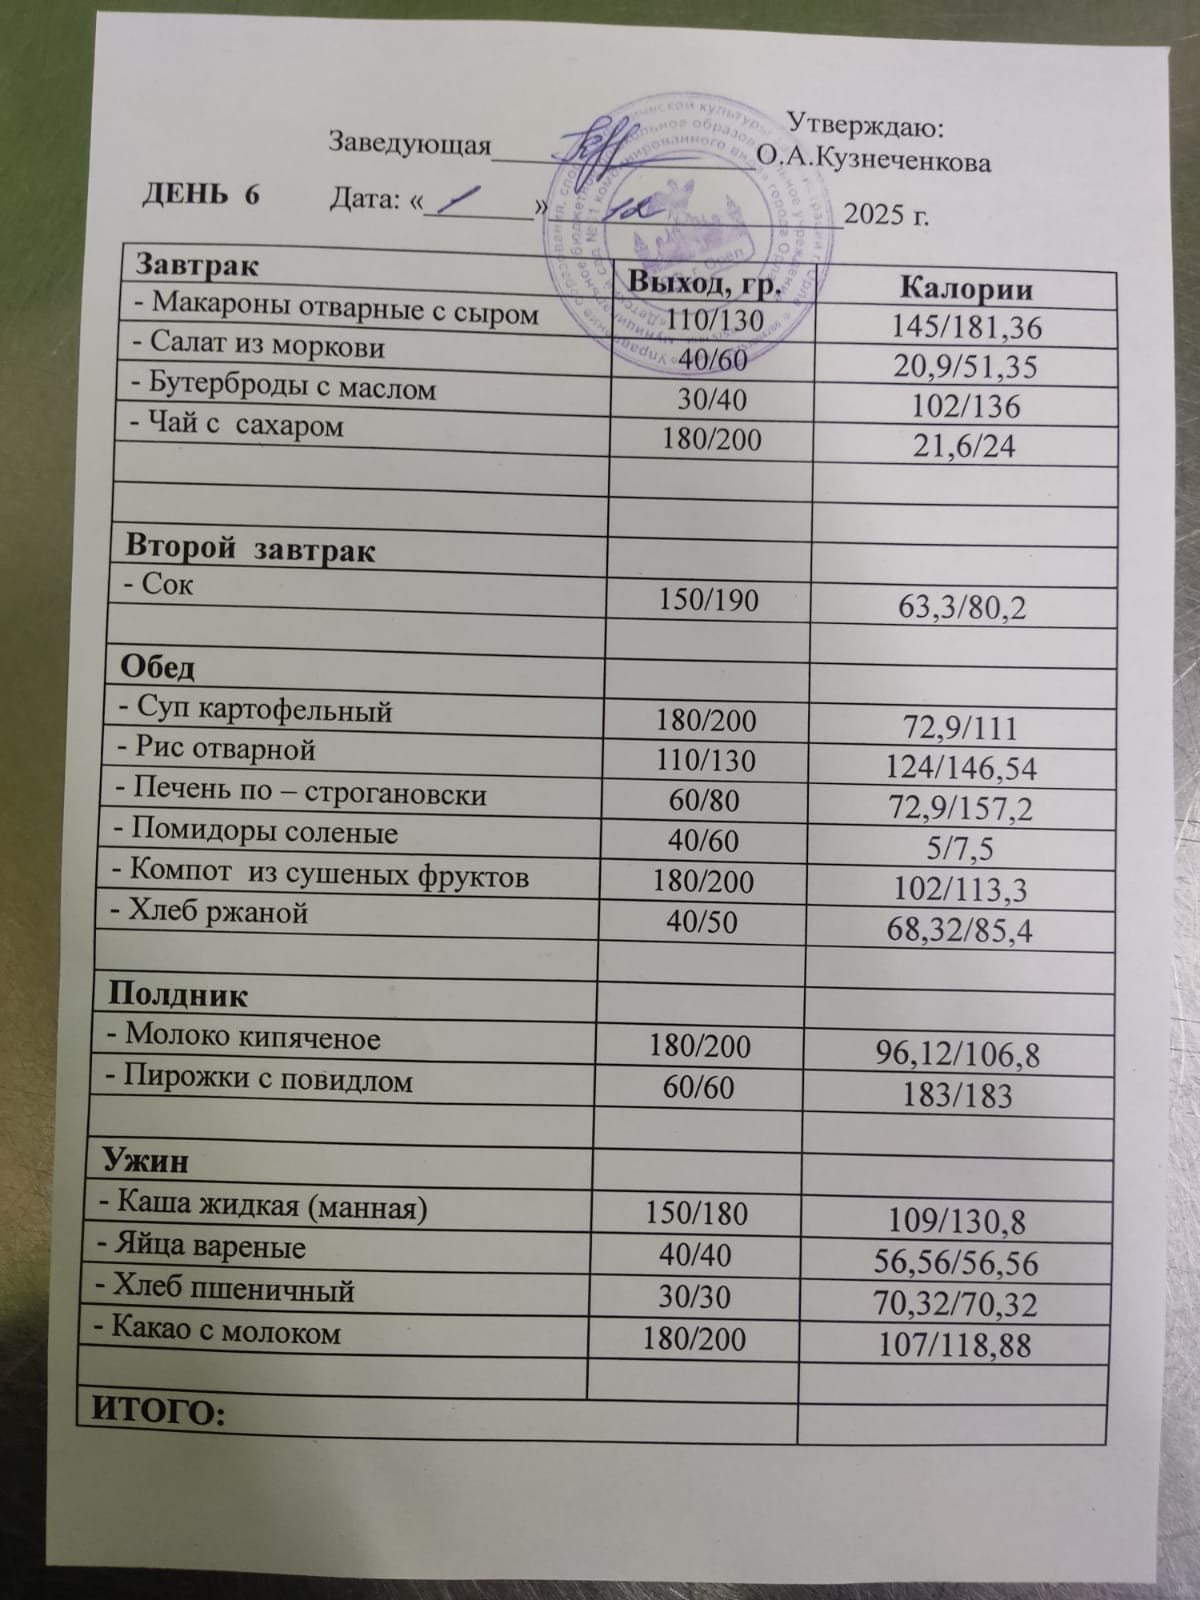 Утверждаю:
Заведующая________________О.А.Кузнеченкова
ДЕНЬ 6 Дата: «1» 12 2025 г.
Завтрак Выход, гр. Калории
- Макароны отварные с сыром 110/130 145/181,36
- Салат из моркови 40/60 20,9/51,35
- Бутерброды с маслом 30/40 102/136
- Чай с сахаром 180/200 21,6/24
Второй завтрак
- Сок 150/190 63,3/80,2
Обед
- Суп картофельный 180/200 72,9/111
- Рис отварной 110/130 124/146,54
- Печень по – строгановски 60/80 72,9/157,2
- Помидоры соленые 40/60 5/7,5
- Компот из сушеных фруктов 180/200 102/113,3
- Хлеб ржаной 40/50 68,32/85,4
Полдник
- Молоко кипяченое 180/200 96,12/106,8
- Пирожки с повидлом 60/60 183/183
Ужин
- Каша жидкая (манная) 150/180 109/130,8
- Яйца вареные 40/40 56,56/56,56
- Хлеб пшеничный 30/30 70,32/70,32
- Какао с молоком 180/200 107/118,88
ИТОГО: